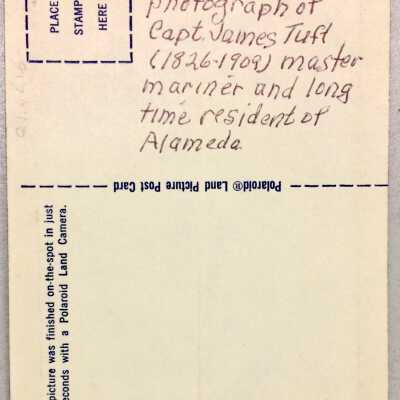 PLACE
STAMP
HERE
photograph of
Capt. James Tuft
(1826-1909) master
mariner and long
time resident of
Alameda
Polaroid® Land Picture Post Card
picture was finished on-the-spot in just
econds with a Polaroid Land Camera.